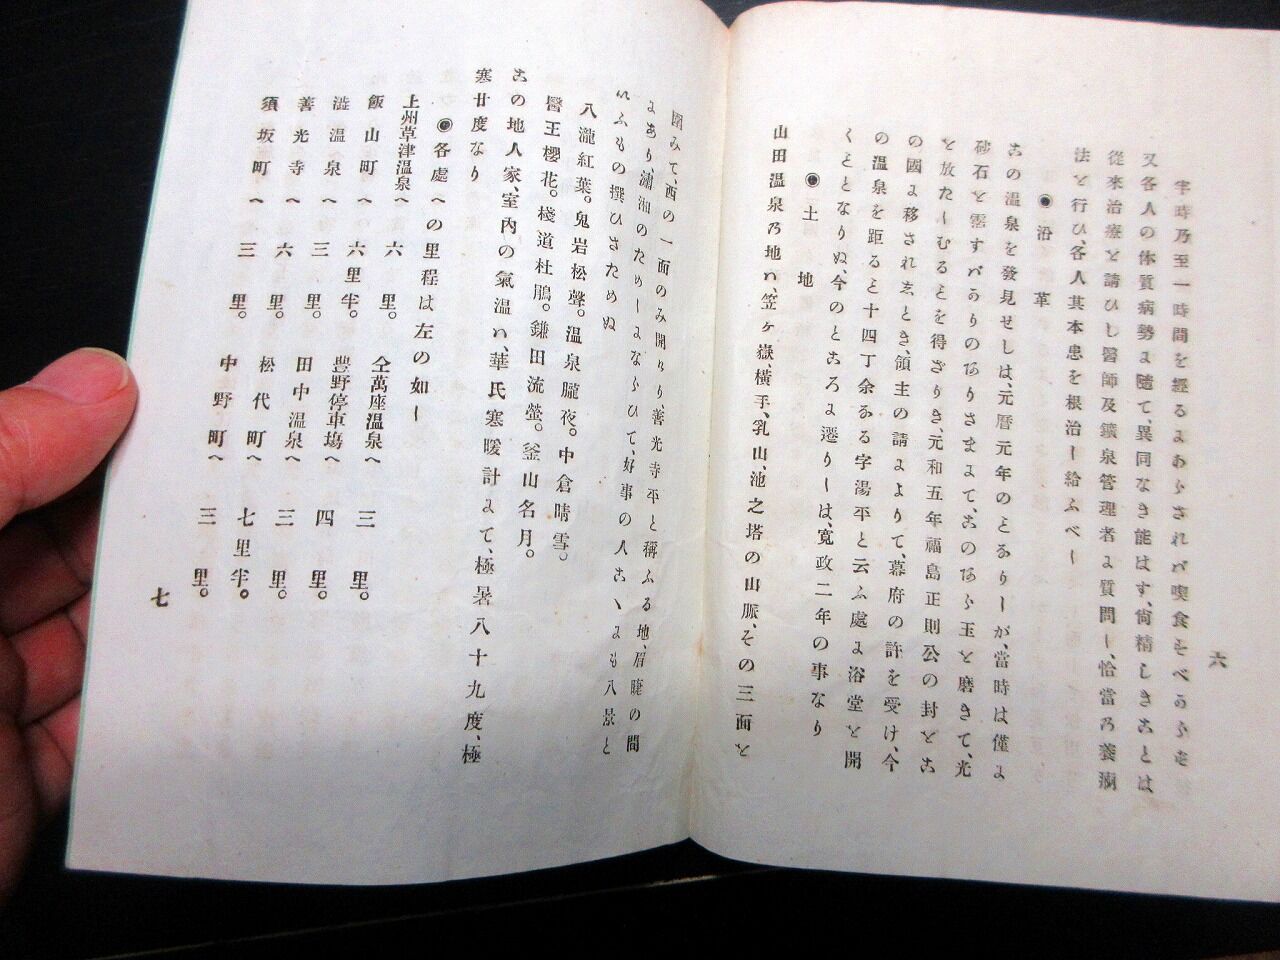 六
半時乃至一時間を經るにあらされバ喫食すべからす
又各人の体質病勢に隨て、異同なき能はす、尙精しきことは
從來治療を請ひし醫師及鑛泉管理者に質問し、恰當乃養痾
法を行ひ、各人其本患を根治し給ふべし
◉沿革
この温泉を發見せしは、元曆元年のとなりしが、當時は僅に
砂石を露すバかりのありさまにて、このあら玉を磨きて、光
を放たしむるとを得ざりき、元和五年福島正則公の封をこ
の國に移されゑとき、領主の請によりて、幕府の許を受け、今
の温泉を距ると十四丁余なる字湯平と云ふ處に浴堂を開
くととなりぬ、今のところに遷りしは、寛政二年の事なり
◉土地
山田温泉乃地ハ、笠ヶ嶽、橫手、乳山、池之塔の山脈、その三面を
圍みて、西の一面のみ開けり、善光寺平と稱ふる地、眉睫の間
にあり、瀟湘のためしにならひて、好事の人こゝにも八景と
いふもの撰ひさためぬ
八瀧紅葉。鬼岩松聲。温泉朧夜。中倉晴雪。
醫王櫻花。棧道杜鵑。鎌田流螢。釜山名月。
この地人家、室內の氣温ハ、華氏寒暖計にて、極暑八十九度、極
寒廿度なり
◉各處への里程は左の如し
上州草津温泉へ 六里。 仝萬座温泉へ 三里。
飯山町へ 六里半。 豊野停車塲へ 四里。
澁温泉へ 三里。 田中温泉へ 三里。
善光寺へ 六里。 松代町へ 七里半。
須坂町へ 三里。 中野町へ 三里。
七